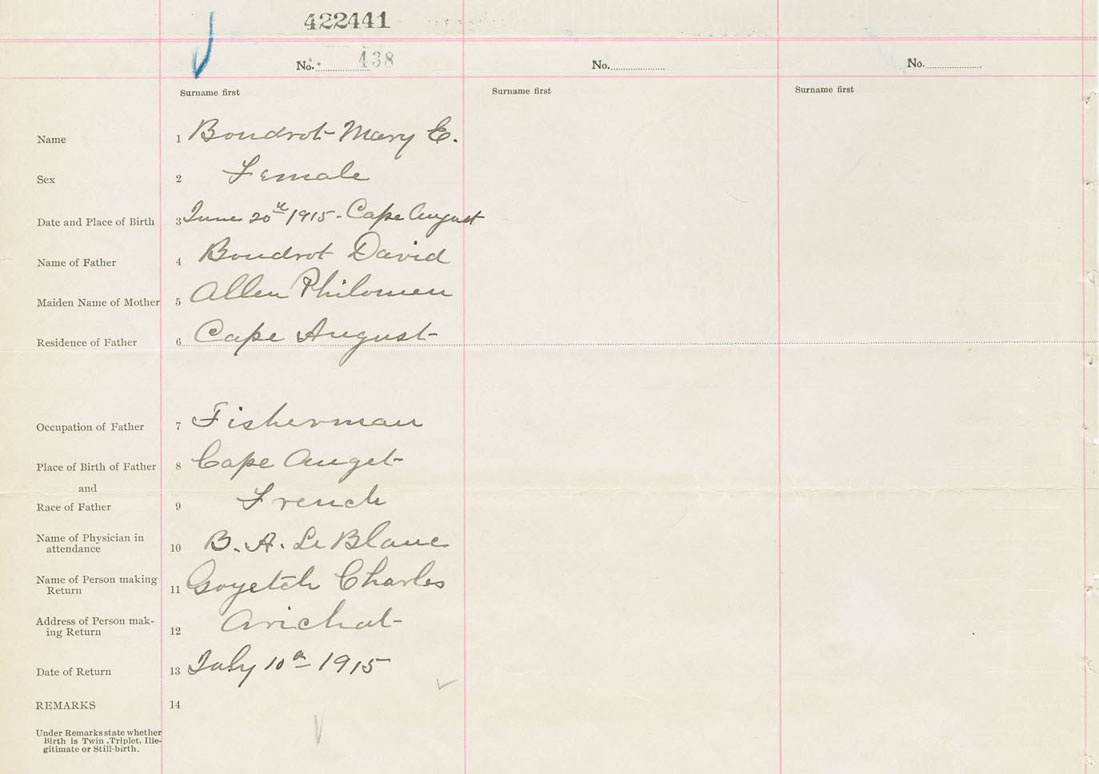 422441
No. 438
No.
No.
Surname first
Surname first
Surname first
Name 1 Boudrot Mary E.
Sex 2 Female
Date and Place of Birth 3 June 20th 1915 - Cape August
Name of Father 4 Boudrot David
Maiden Name of Mother 5 Allen Philomen
Residence of Father 6 Cape August
Occupation of Father 7 Fisherman
Place of Birth of Father 8 Cape Auget
and
Race of Father 9 French
Name of Physician in
attendance 10 B. A. Le Blanc
Name of Person making
Return 11 Goyetch Charles
Address of Person mak-
ing Return 12 Arichat
Date of Return 13 July 10th 1915
REMARKS 14
Under Remarks state whether
Birth is Twin, Triplet, Ille-
gitimate or Still-birth.